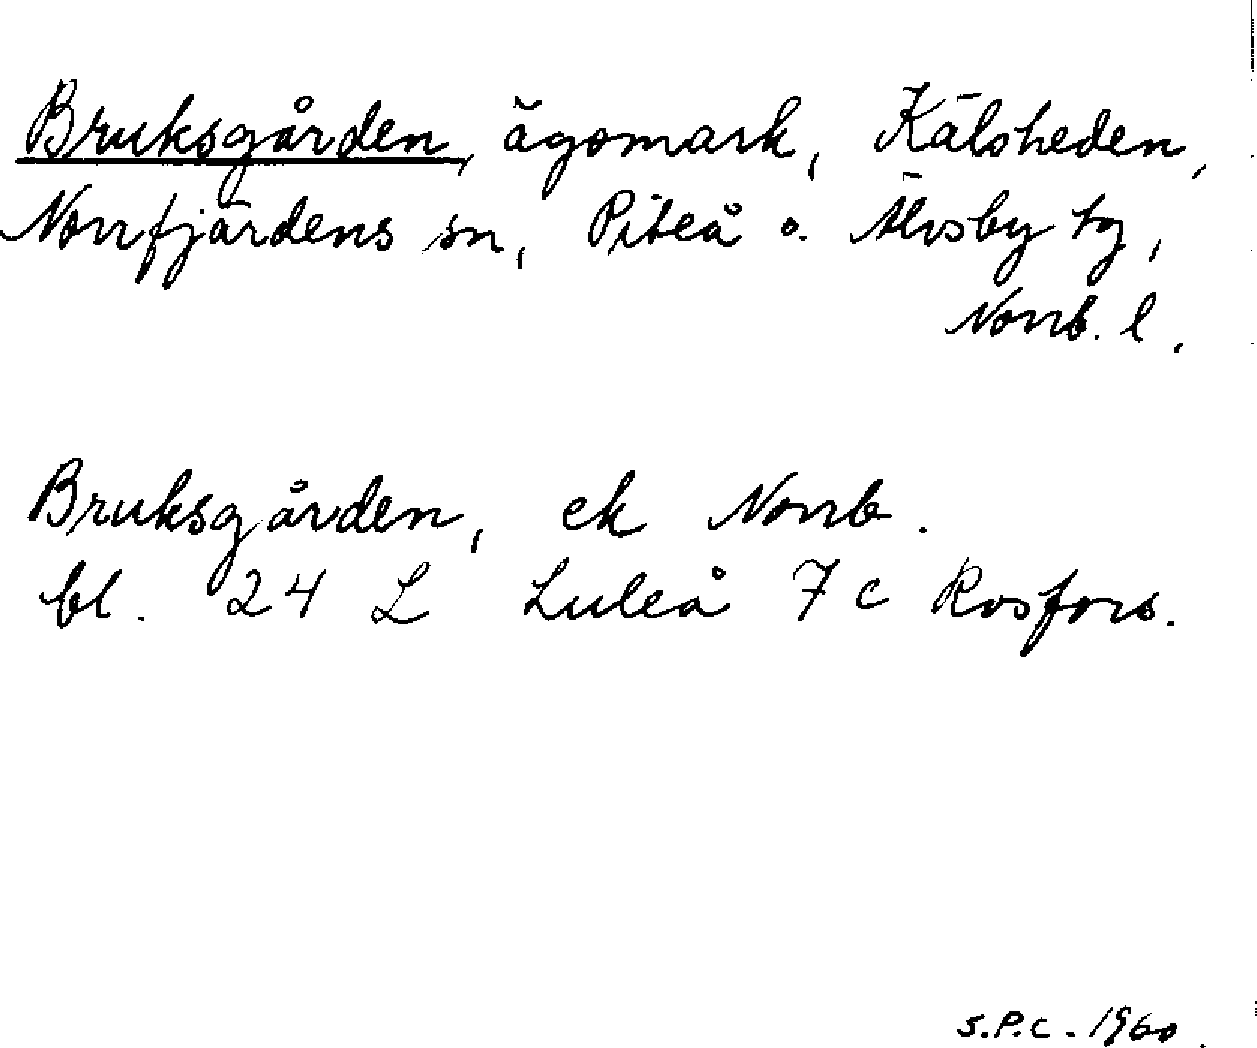 Bruksgården, ägomark, Kälsheden,
Norrfjärdens sn, Piteå o. Älvsby tg,
Norrb. l.
Bruksgården, ek Norrb.
bl. 24 L Luleå 7 c Rosfors.
S.P.C. 1960.